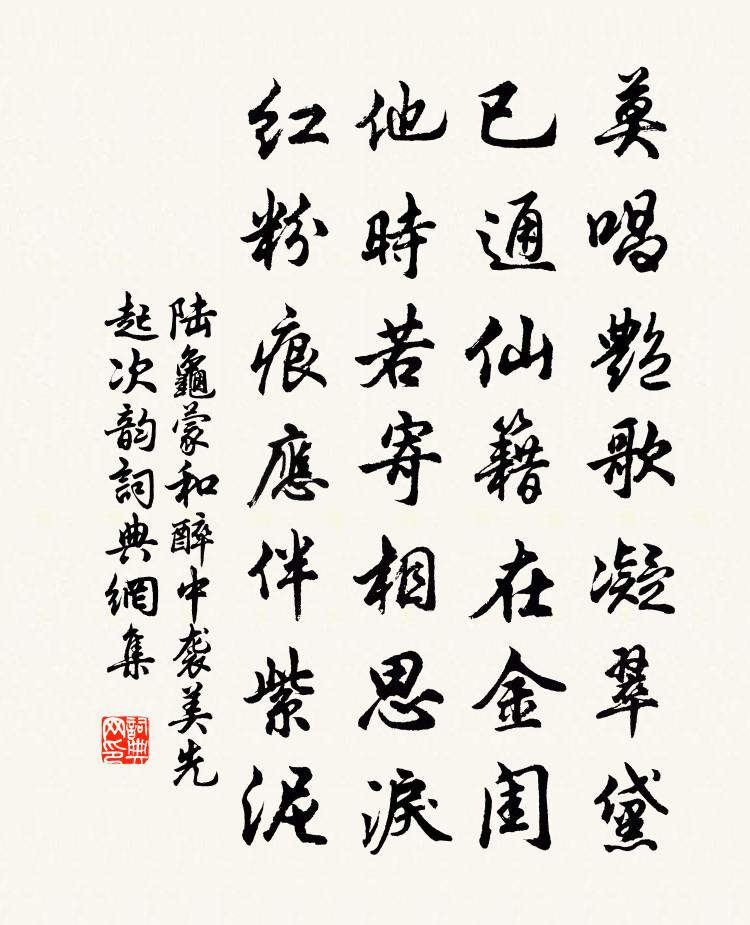 莫唱艷歌凝翠黛
已通仙籍在金閨
他時若寄相思淚
紅粉痕應伴紫泥
陸龜蒙和醉中袭美先
起次韵詞典網集
詞典网印